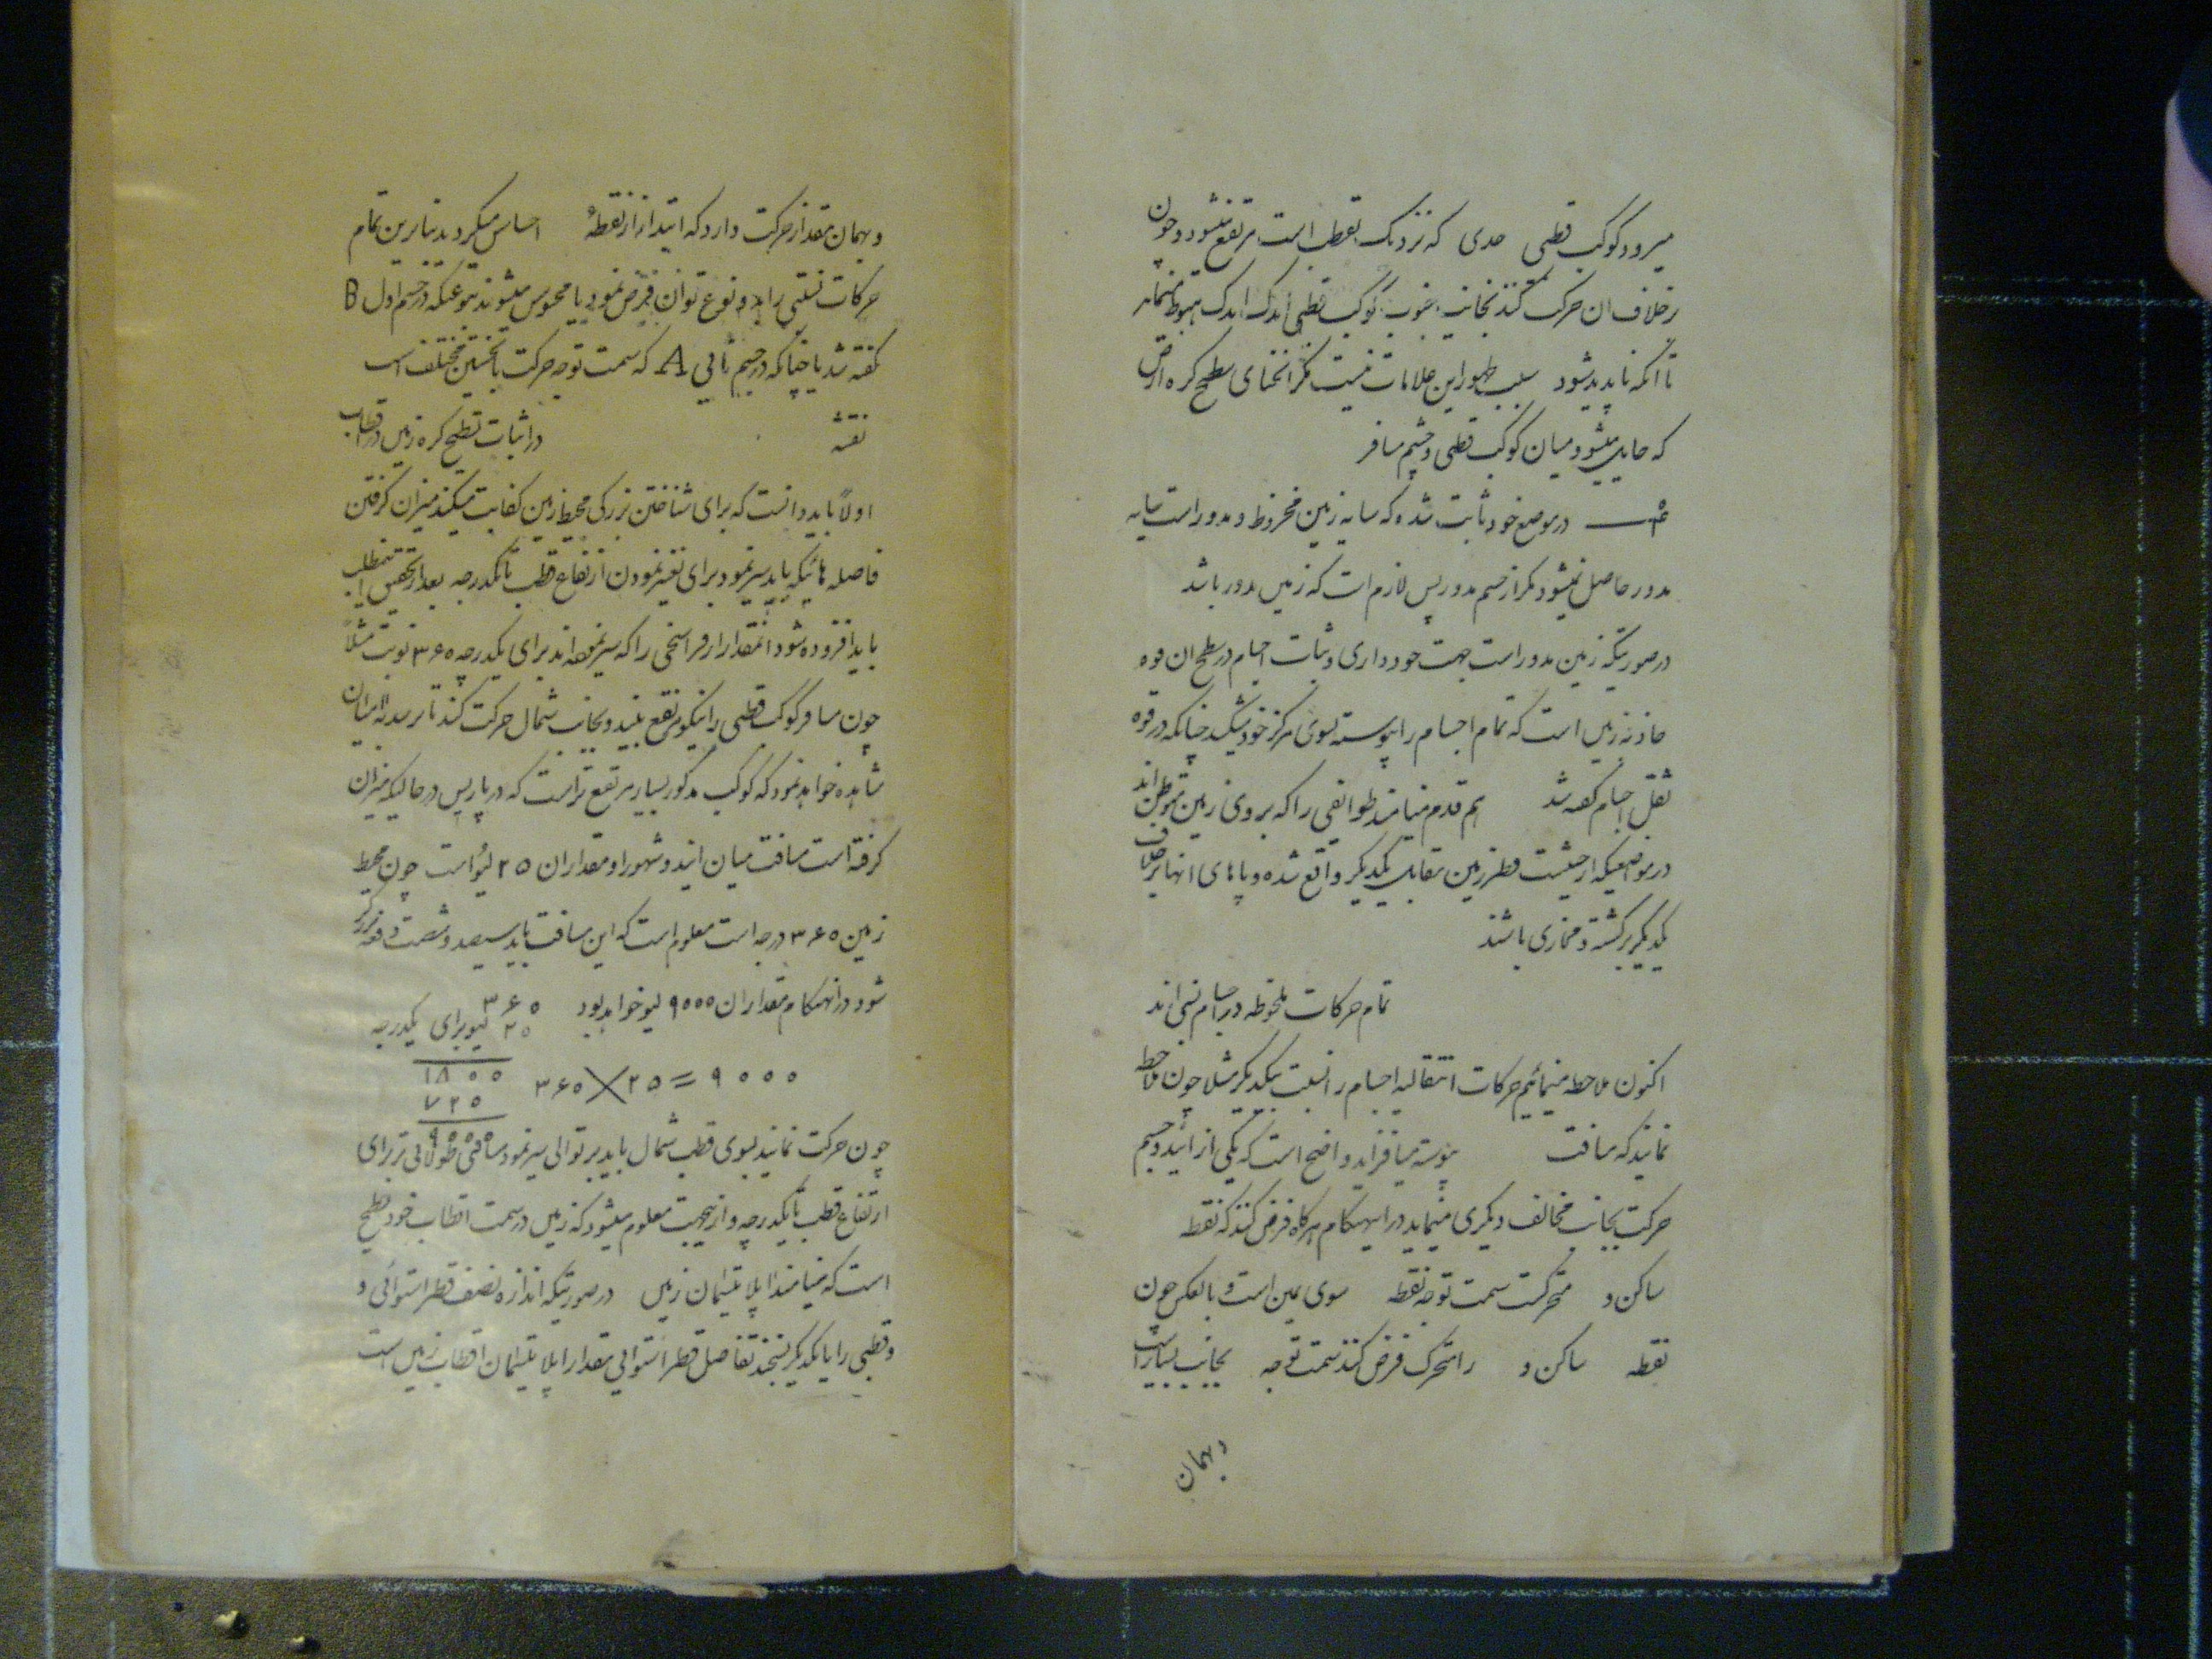 میرود کوکب قطبی جدی که نزدیک بقطب است مرتفع میشود و چون
برخلاف ان حرکت کنند بجانب جنوب کوکب قطبی اندک اندک هبوط مینماید
تا انکه ناپدید شود سبب ظهور این علامات نیست مگر انحنای سطح کره ارض
که حایل میشود میان کوکب قطبی و چشم مسافر
در موضع خود ثابت شده که سایه زمین مخروط و مدور است سایه
مدور حاصل نمیشود مکر از جسم مدور پس لازم است که زمین مدور باشد
در صورتیکه زمین مدور است جهت خودداری و ثبات اجسام در سطح ان قوه
جاذبه زمین است که تمام اجسام را پیوسته بسوی مرکز خود میکشد چنانکه در قوه
ثقل اجسام کفته شد هم قدم مینامند طوایفی را که بروی زمین متوطن اند
در مواضعیکه از حیثیت قطر زمین مقابل یکدیکر واقع شده و پاهای انها برخلاف
یکدیکر برکشته و محاذی باشند
تمام حرکات ملحوظه در اجسام نسبی اند
اکنون ملاحظه مینمائیم حرکات انتقالیه اجسام را نسبت بیکدیکر مثلا چون ملاحظه
نمایند که مسافت پیوسته میافزاید واضح است که یکی از ایندو جسم
حرکت بجانب مخالف دیکری مینماید در اینهنکام هرکاه فرض کنند که نقطه
ساکن و متحرکست سمت توجه نقطه سوی یمین است و بالعکس چون
نقطه ساکن و را متحرک فرض کنند سمت توجه بجانب یسار است
و بهمان
و بهمان مقدار حرکت دارد که ابتدا از نقطهٔ احساس میکردید بنابرین تمام
حرکات نسبتی را بدو نوع توان فرض نمود یا محسوس میشوند بنوعیکه در جسم اول B
کفته شد یا چنانکه در جسم ثانی A که سمت توجه حرکت با نخستین مختلف است
نقشه در اثبات تسطیح کره زمین در اقطاب
اولاً باید دانست که برای شناختن بزرکی محیط زمین کفایت میکند میزان کرفتن
فاصله هائیکه باید سیر نمود برای تغییر نمودن ارتفاع قطب تا یکدرجه بعد از تحقیق اینمطلب
باید افزوده شود انمقدار از فراسخی را که سیر نموده اند برای یکدرجه ۳۶۰ نوبت مثلاً
چون مسافر کوکب قطبی را نیکو مرتفع بیند و بجانب شمال حرکت کند تا برسد به امیان
مشاهده خواهد نمود که کوکب مذکور بسیار مرتفع تر است که در پاریس در حالیکه میزان
کرفته است مسافت میان ایندو شهر را و مقدار ان ۲۵ لیو است چون محیط
زمین ۳۶۰ درجه است معلوم است که این مسافت باید سیصد و شصت دفعه مکرر
شود در انهنکام مقدار ان ۹۰۰۰ لیو خواهد بود ۳۶۰
۲۵ لیو برای یکدرجه
۳۶۰ × ۲۵ = ۹۰۰۰ ۱۸۰۰
۷۲۰
۹۰۰۰
چون حرکت نمایند بسوی قطب شمال باید بر توالی سیر نمود مسافتی طولانی تر برای
ارتفاع قطب تا یکدرجه و از اینجهت معلوم میشود که زمین در سمت اقطاب خود مسطح
است که مینامند اپلاتیسمان زمین در صورتیکه اندازه نصف قطر استوائی و
و قطبی را با یکدیکر بسنجند تفاضل قطر استوایی مقدار اپلاتیسمان اقطاب زمین است